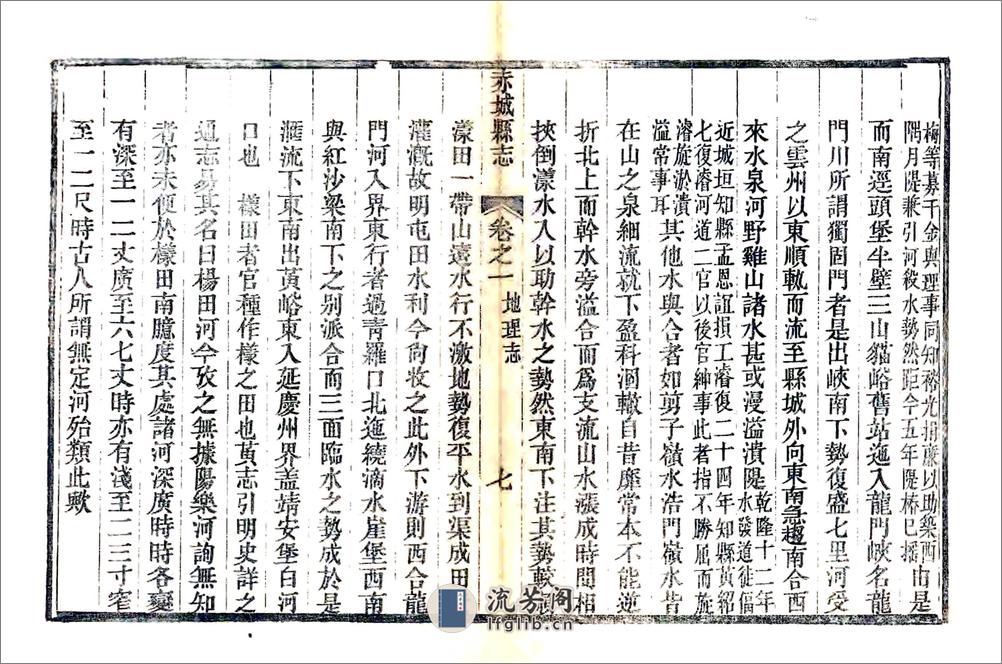 梅等募千金與理事同知裕光捐廉以助築西
隅月隄兼引河殺水勢然距今五年隄樁已摇
由是
而南逕頭堡半壁三山貓峪舊站迤入龍門峽名龍
門川所謂獨固門者是出峽南下勢復盛七里河受
之雲州以東順軌而流至縣城外向東南急趨南合西
來水泉河野雞山諸水甚或漫溢潰隄
乾隆十二年水發道徙偪
近城垣知縣孟思誼損工濬復二十四年知縣黃紹
七復濬河道二官以後官紳事此者指不勝屈而旋
濬旋淤潰
溢常事耳
其他水與合者如剪子嶺水浩門嶺水皆
在山之泉細流就下盈科涸轍自昔靡常本不能逆
折北上而幹水旁溢合而爲支流山水漲成時間相
挾倒漾水入以助幹水之勢然東南下注其勢較
漾田一帶山遠水行不激地勢復平水到渠成田
灌溉故明屯田水利今尚收之此外下游則西合龍
門河入界東行者過靑羅口北迤繞滴水崖堡西南
與紅沙梁南下之别派合而三面臨水之勢成於是
滙流下東南出黃峪東入延慶州界蓋靖安堡白河
口也 樣田者官種作樣之田也黃志引明史詳之
通志易其名曰楊田河今攷之無據陽樂河詢無知
者亦未便於樣田南臆度其處諸河深廣時時各變
有深至一二丈廣至六七丈時亦有淺至二三寸窄
至一二尺時古人所謂無定河殆類此歟
赤城縣志
卷之一
地理志
七
流芳阁
lfglib.cn